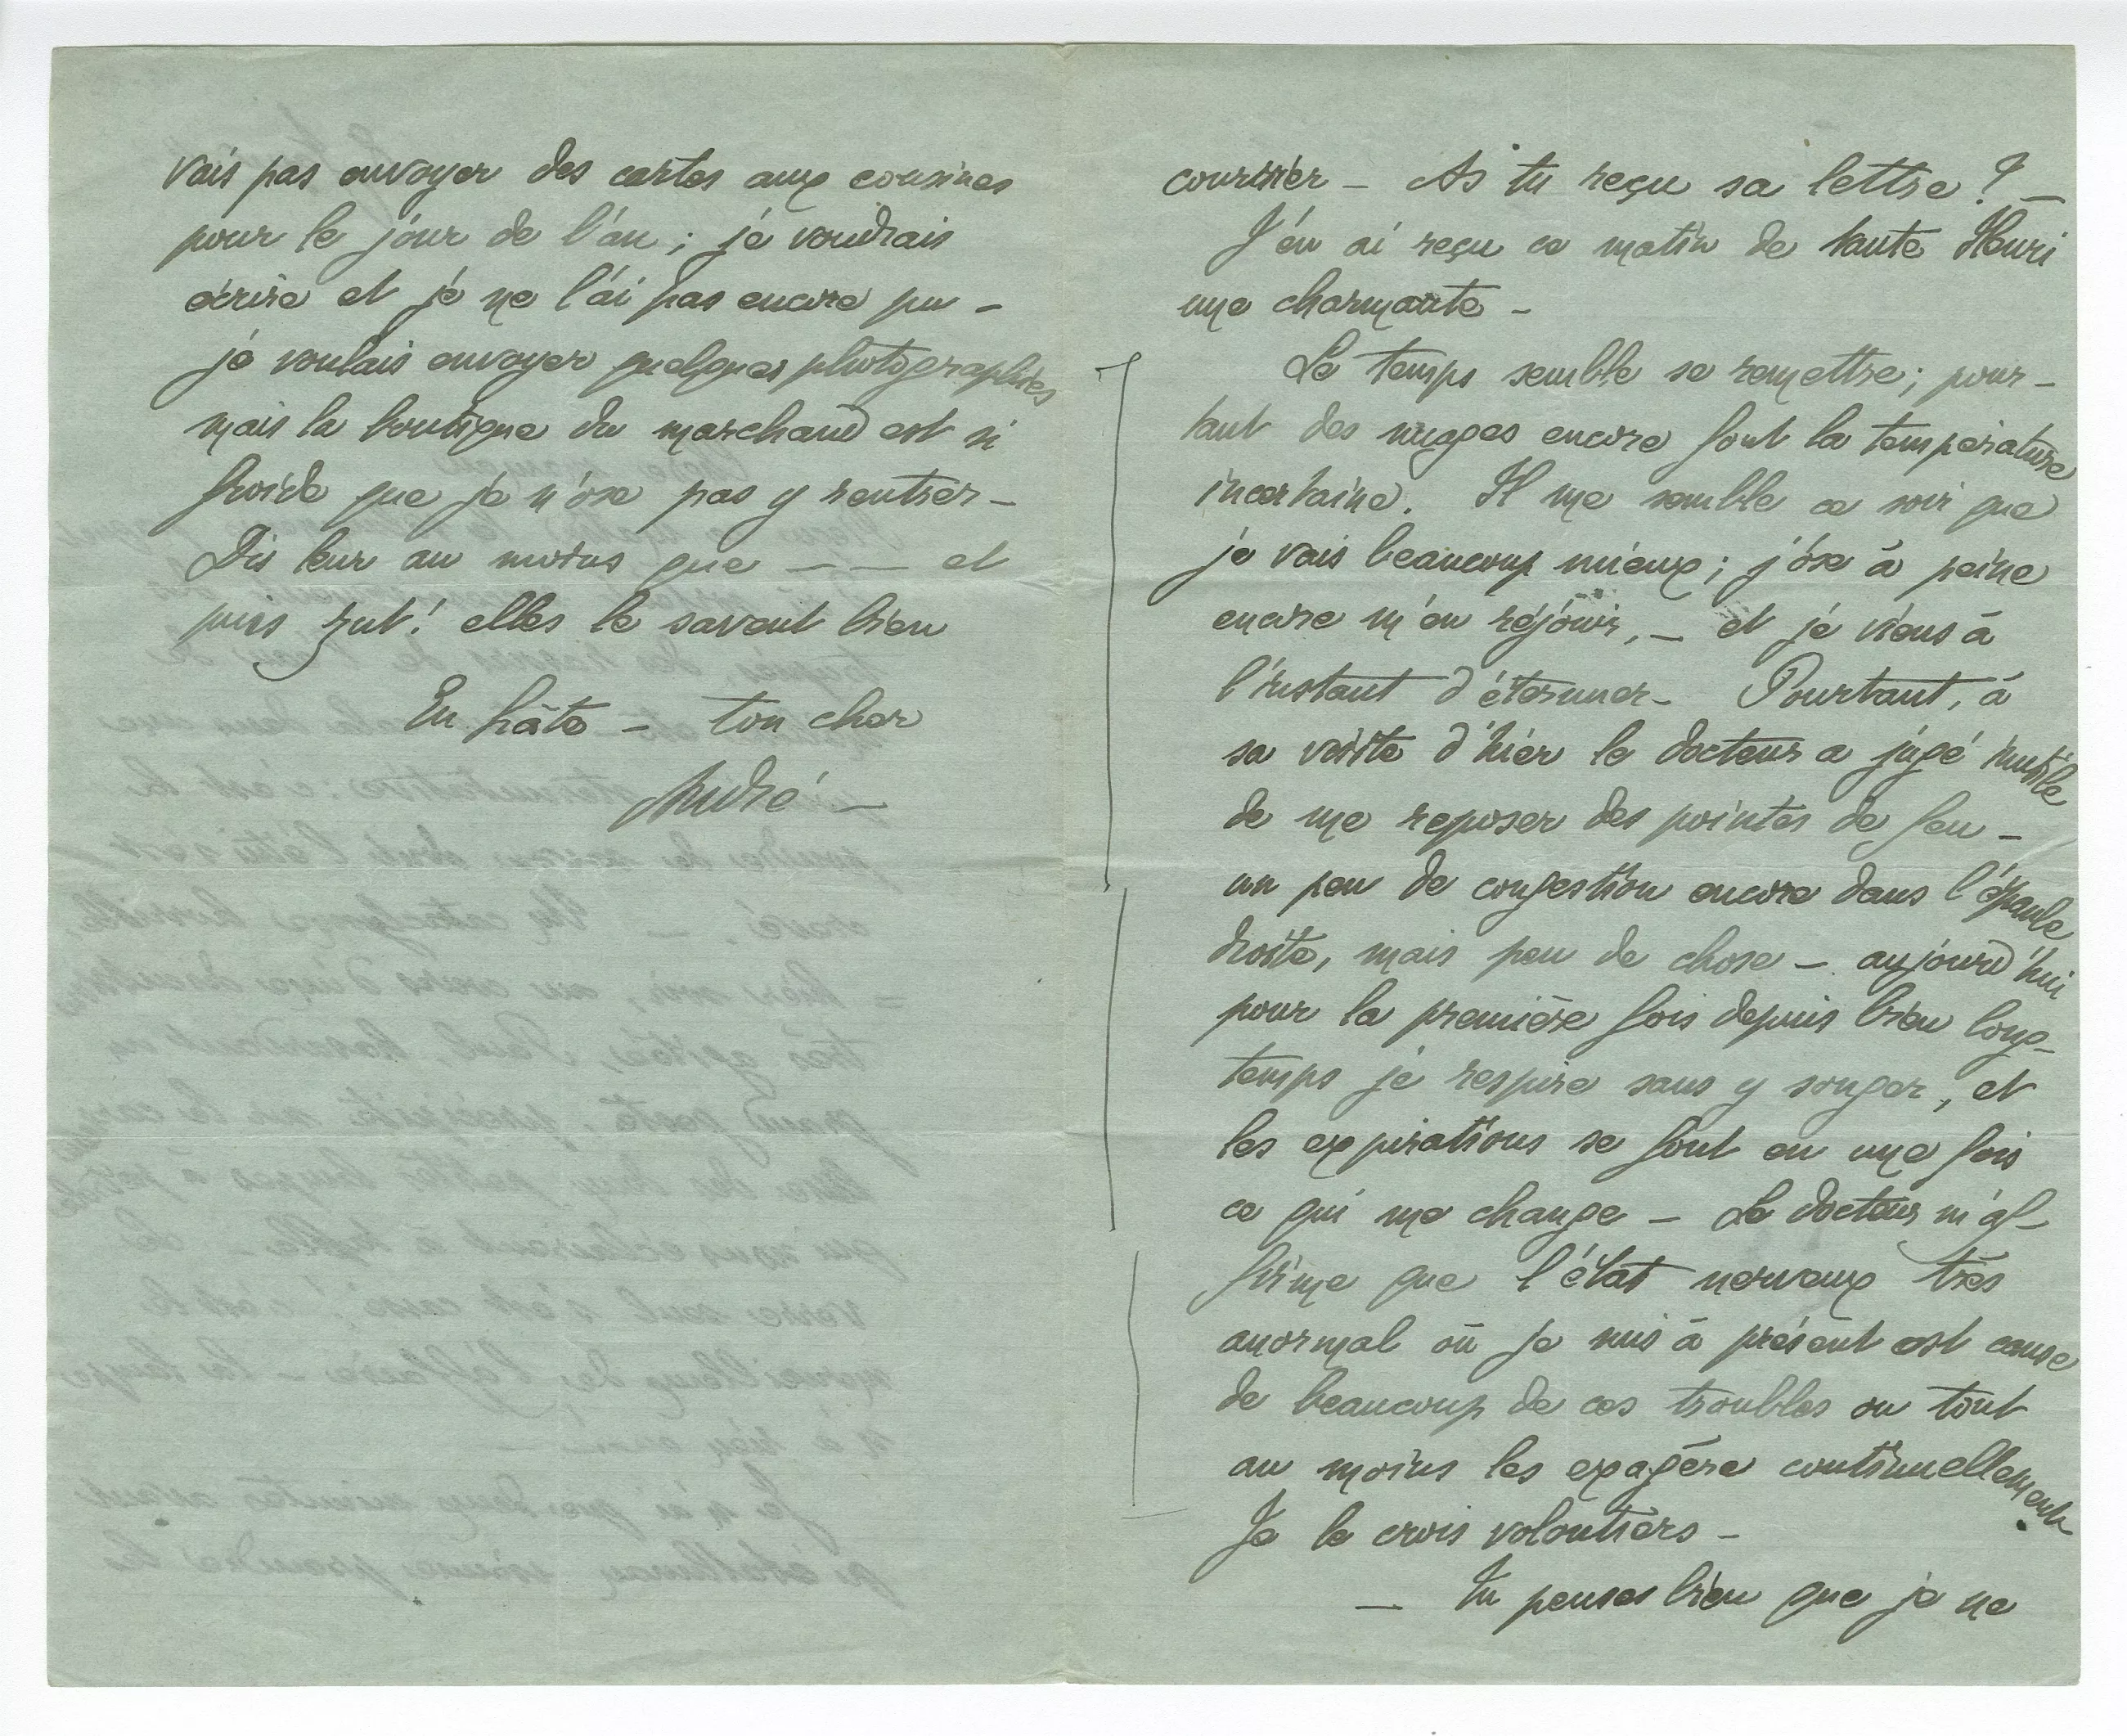 courrier – As tu reçu sa lettre ? –
J'en ai reçu ce matin de tante Henri
une charmante –
Le temps semble se remettre ; pour –
tant des nuages encore font la température
incertaine. Il me semble ce soir que
je vais beaucoup mieux ; j'ose à peine
encore m'en réjouir, – et je viens à
l'instant d'éternuer – Pourtant, à
sa visite d'hier le docteur a jugé inutile
de me reposer des pointes de feu –
un peu de congestion encore dans l'épaule
droite, mais peu de chose – aujourd'hui
pour la première fois depuis bien long –
temps je respire sans y songer, et
les expirations se font en une fois
ce qui me change – Le docteur m'af –
firme que l'état nerveux très
anormal où je suis à présent est cause
de beaucoup de ces troubles ou tout
au moins les exagère continuellement.
Je le crois volontiers –
– Tu penses bien que je ne
vais pas envoyer des cartes aux cousines
pour le jour de l'an ; je voudrais
écrire et je ne l'ai pas encore pu –
je voulais envoyer quelques photographies
mais la boutique du marchand est si
froide que je n'ose pas y rentrer –
Dis leur au moins que – — et
puis zut ! elles le savent bien
En hâte – ton cher
André –